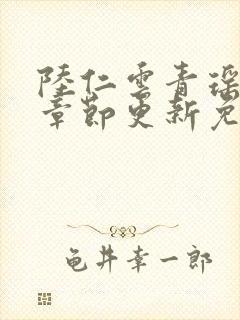 陸仁雲青瑶
章節更新免
龟井幸一郎